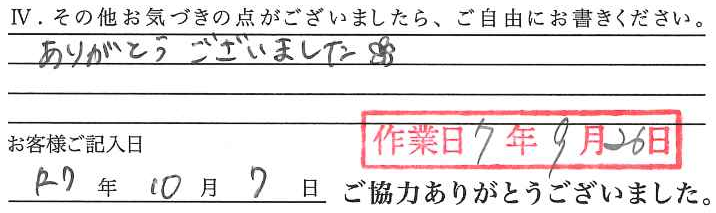 Ⅳ.その他お気づきの点がございましたら、ご自由にお書きください。
ありがとうございました
お客様ご記入日
作業日 7年9月26日
R7年10月7日
ご協力ありがとうございました。